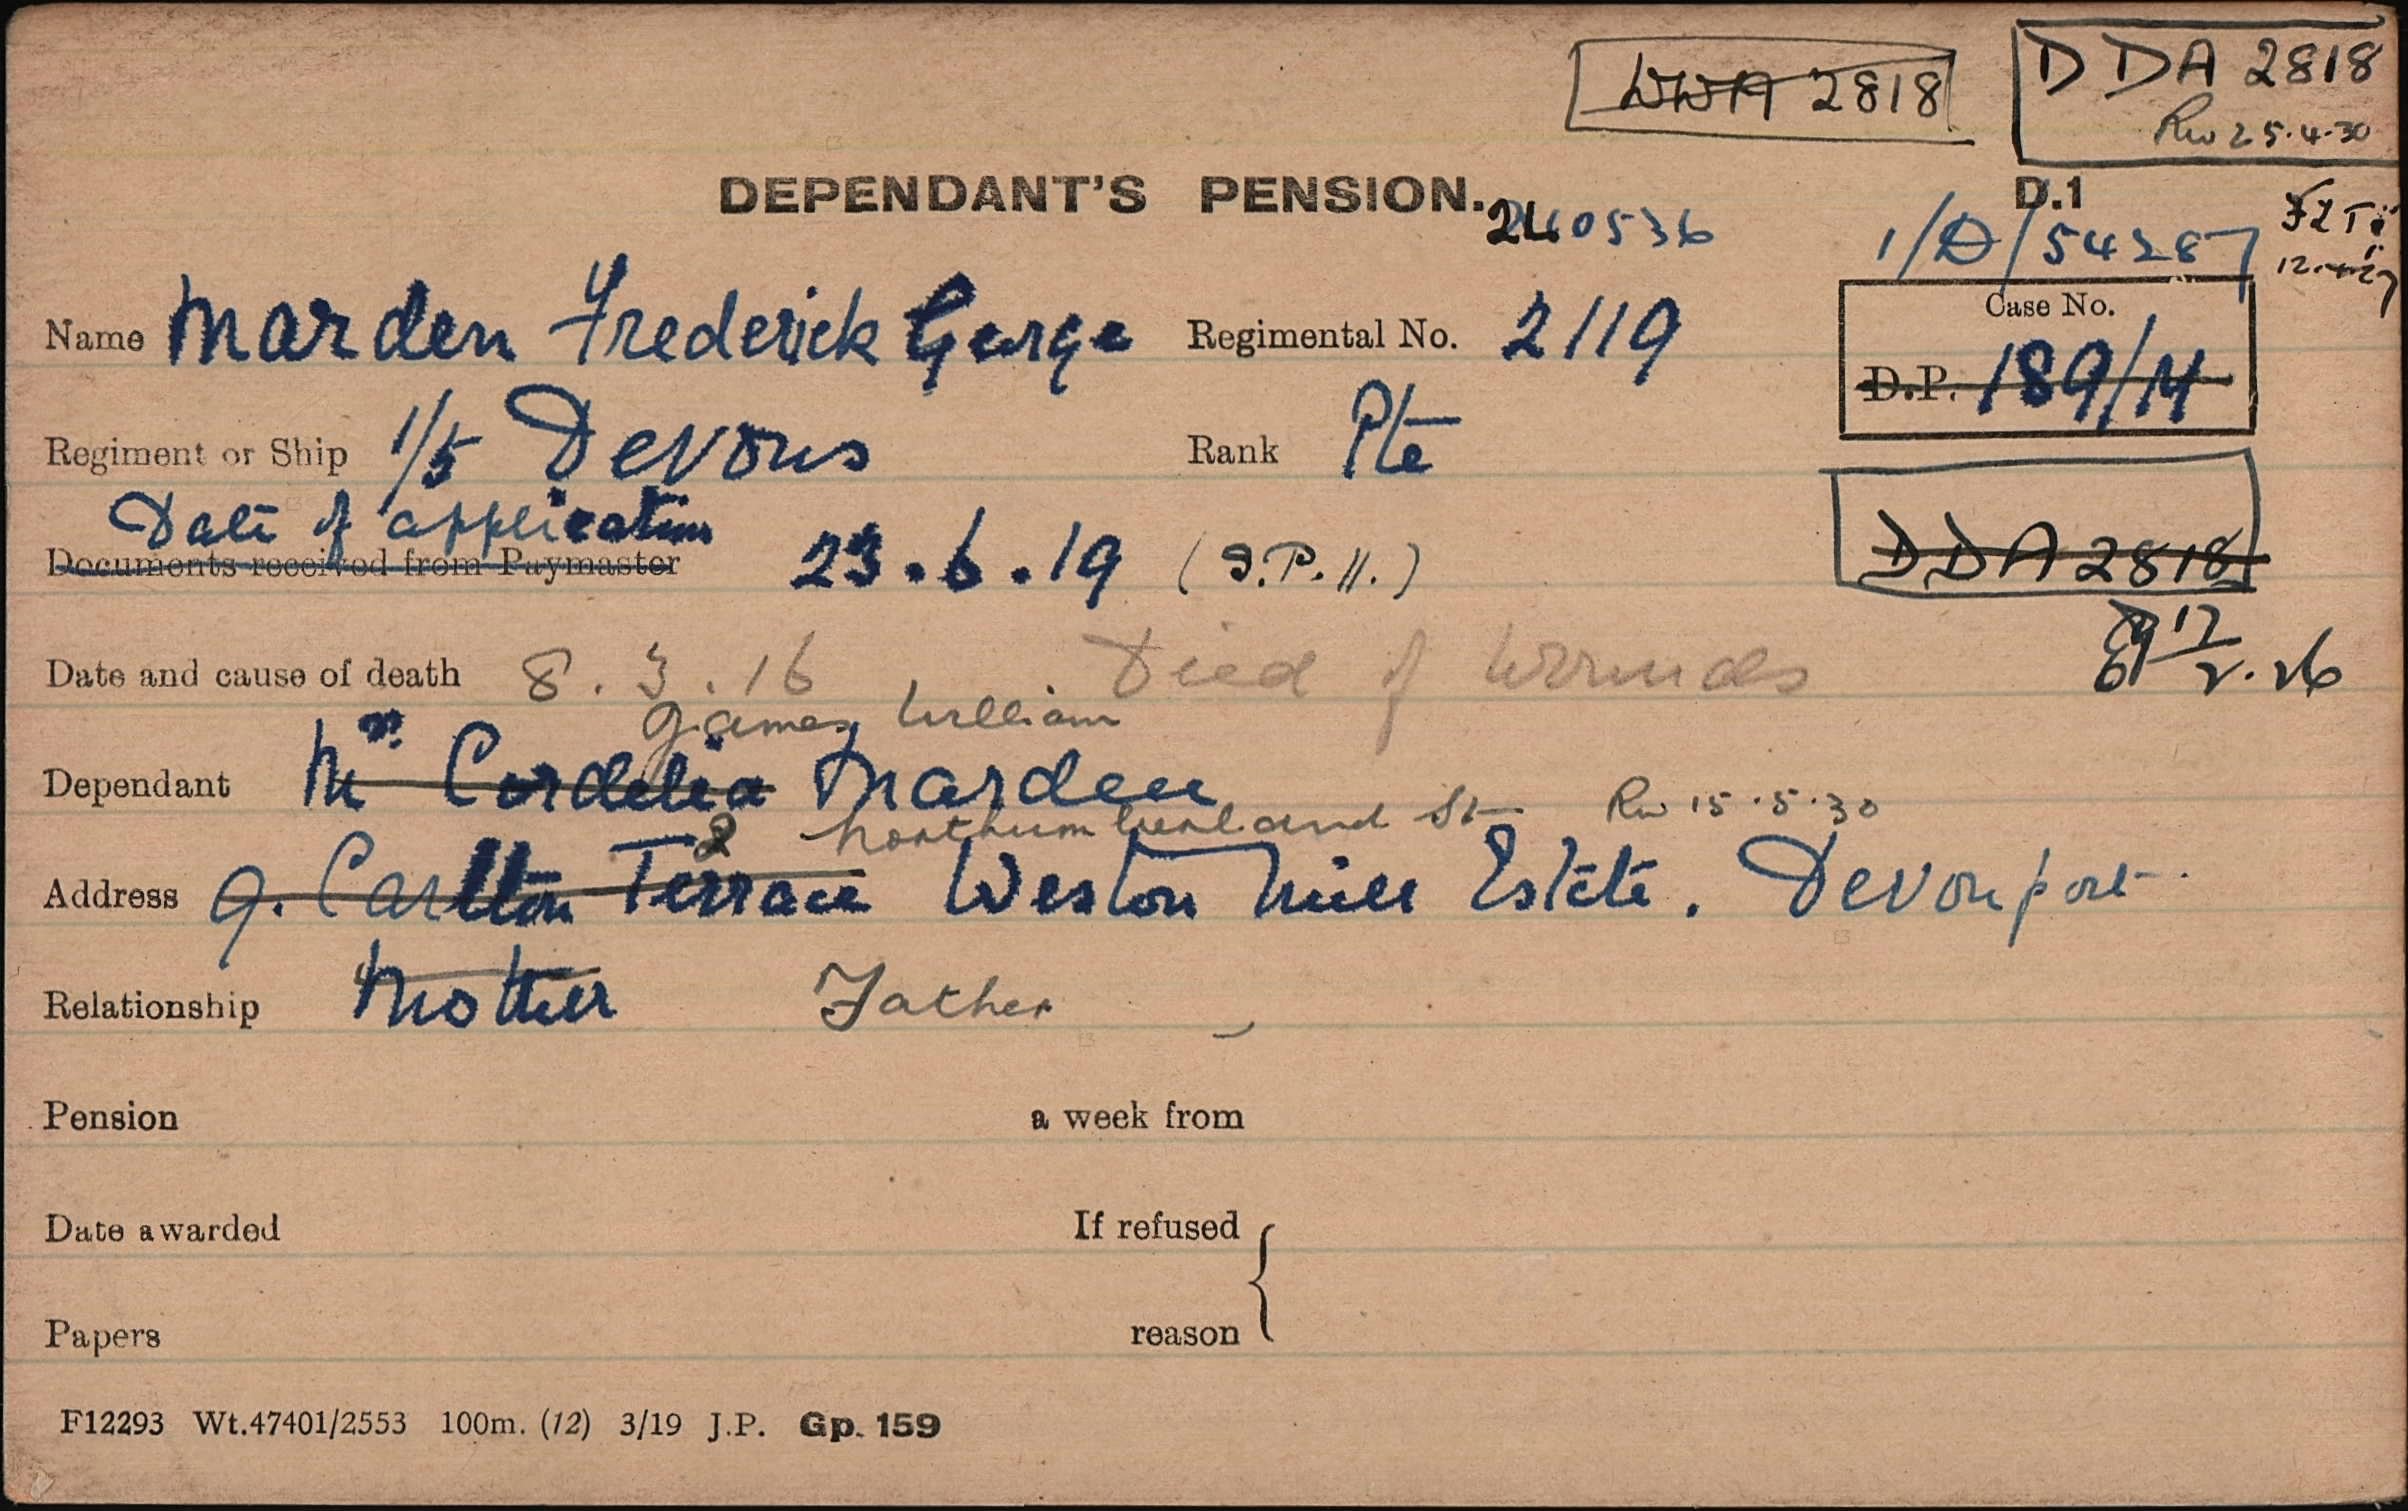 WWA 2818
DDA 2818
Rw 25.4.30
DEPENDANT'S PENSION.
240536
D.1
1/D/54287
12.4.27
Name Marden Frederick George Regimental No. 2119
Case No.
D.P. 189/M
Regiment or Ship 1/5 Devons Rank Pte
Date of application
Documents received from Paymaster 23.6.19 (S.P.11.)
DDA 2818
Date and cause of death 8.3.16 Died of Wounds
17/2.26
James William
Dependant Mrs Cordelia Marden
2 Northumberland St Rw 15.5.30
Address 9. Carlton Terrace Weston Mill Estate. Devonport.
Relationship Mother Father
Pension a week from
Date awarded If refused
Papers reason
F12293 Wt.47401/2553 100m. (12) 3/19 J.P. Gp. 159